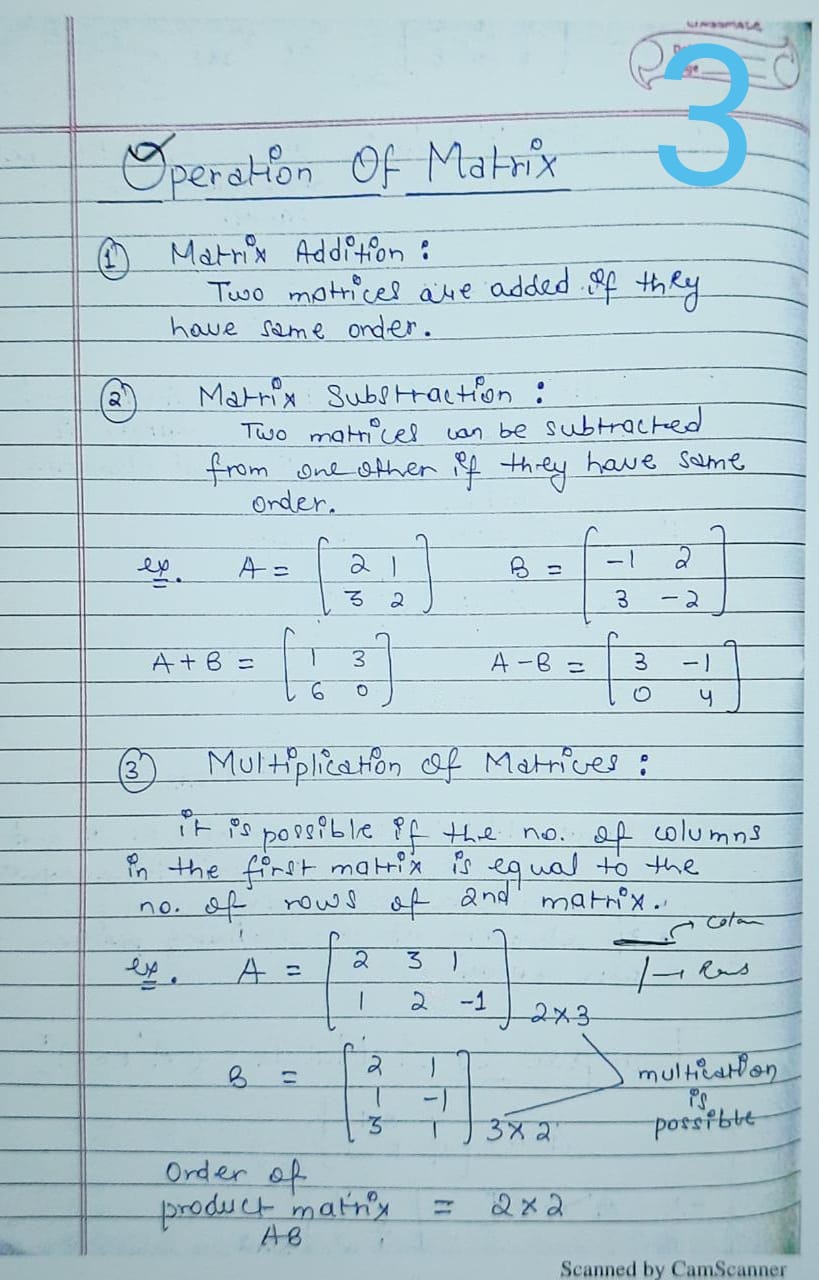 CLASSMATE
3
Operation Of Matrix
1 Matrix Addition :
Two matrices are added if they
have same order.
2 Matrix Substraction :
Two matrices can be subtracted
from one other if they have same
order.
ex. A = [ 2 1 B = [ -1 2
3 2 ] 3 -2 ]
A + B = [ 1 3 A - B = [ 3 -1
6 0 ] 0 4 ]
3 Multiplication of Matrices :
it is possible if the no. of columns
in the first matrix is equal to the
no. of rows of 2nd matrix.
ex. A = [ 2 3 1
1 2 -1 ] 2×3
B = [ 2 1
1 -1
3 1 ] 3×2
multication
is
possible
Order of
product matrix = 2×2
AB
Scanned by CamScanner